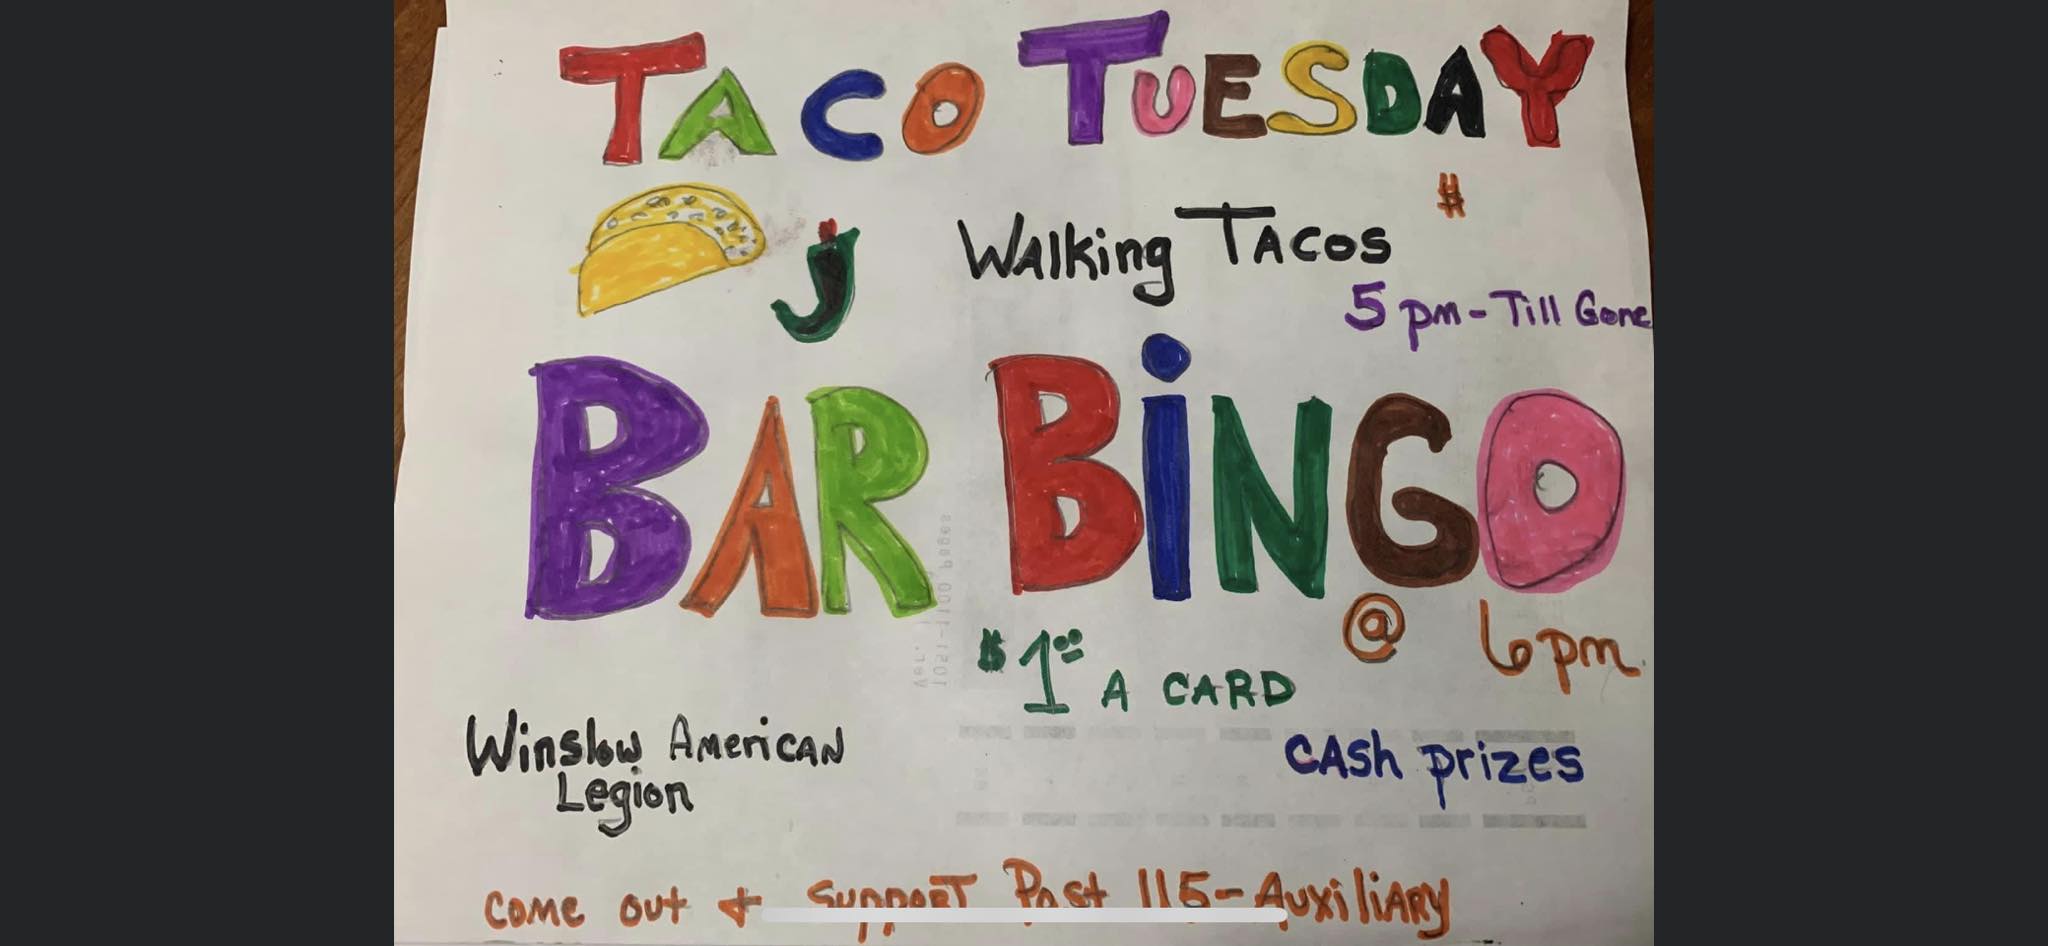 TACO TUESDAY
$
WALking TACOS
5 pm - Till Gone
BAR BiNGO
@ 6pm.
$1.00 A CARD
Winslow AmericAN
Legion
CASh prizes
come out + SuppORT Post 115-AuxiliARy